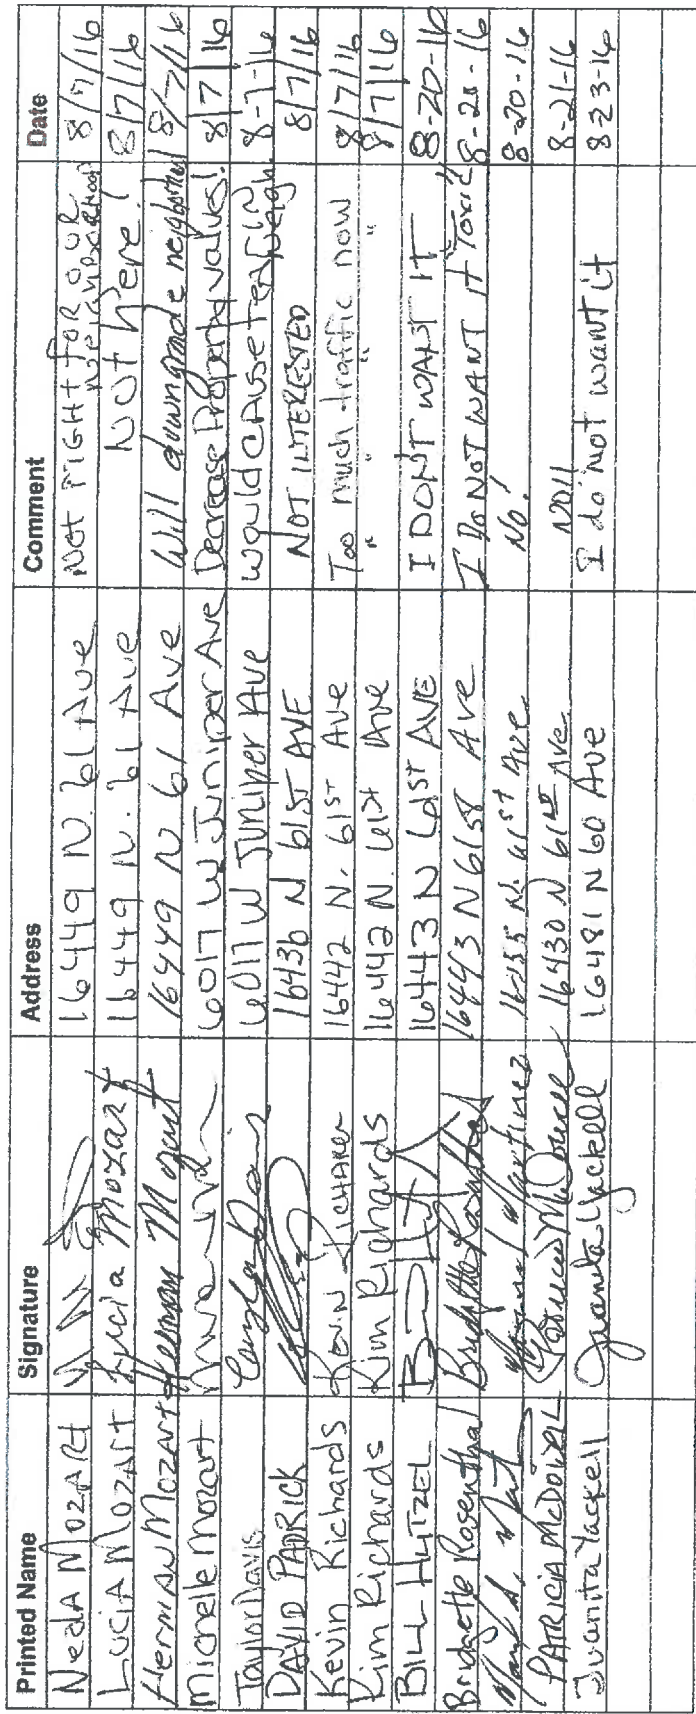 Printed Name Signature Address Comment Date
Neda Mozart 16449 N. 61 Ave Not Right for our neighborhood 8/7/16
Lucia Mozart Lucia Mozart 16449 N. 61 Ave Not here! 8/7/16
Herman Mozart Herman Mozart 16449 N 61 Ave Will downgrade neighborhood 8/7/16
Michelle Mozart 6017 W Juniper Ave Decrease Property values! 8/7/16
Taylor Davis 6017 W Juniper Ave Would cause fear in neigh. 8-7-16
DAVID PADRICK 16436 N 61ST AVE NOT INTERESTED 8/7/16
Kevin Richards Kevin Richards 16442 N. 61ST Ave Too much traffic now 8/7/16
Kim Richards Kim Richards 16442 N. 61st Ave " " " 8/7/16
BILL HUTZEL 16443 N 61ST AVE I DON'T WANT IT 8-20-16
Bridgette Rosenthal Bridgette Rosenthal 16443 N 61st Ave I Do NOT WANT it Toxic! 8-20-16
Martinez N. 61st Ave. No! 8-20-16
PATRICIA McDOWELL Patricia McDowell 16430 N 61st Ave. 8-21-16
Juanita Yackell Juanita Yackell 16481 N 60 Ave I do not want it 8-23-16